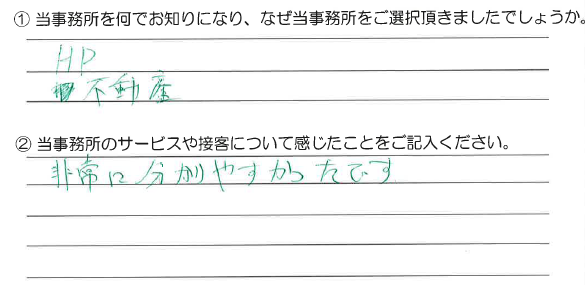 ① 当事務所を何でお知りになり、なぜ当事務所をご選択頂きましたでしょうか。
HP
不動産
② 当事務所のサービスや接客について感じたことをご記入ください。
非常に分かりやすかったです